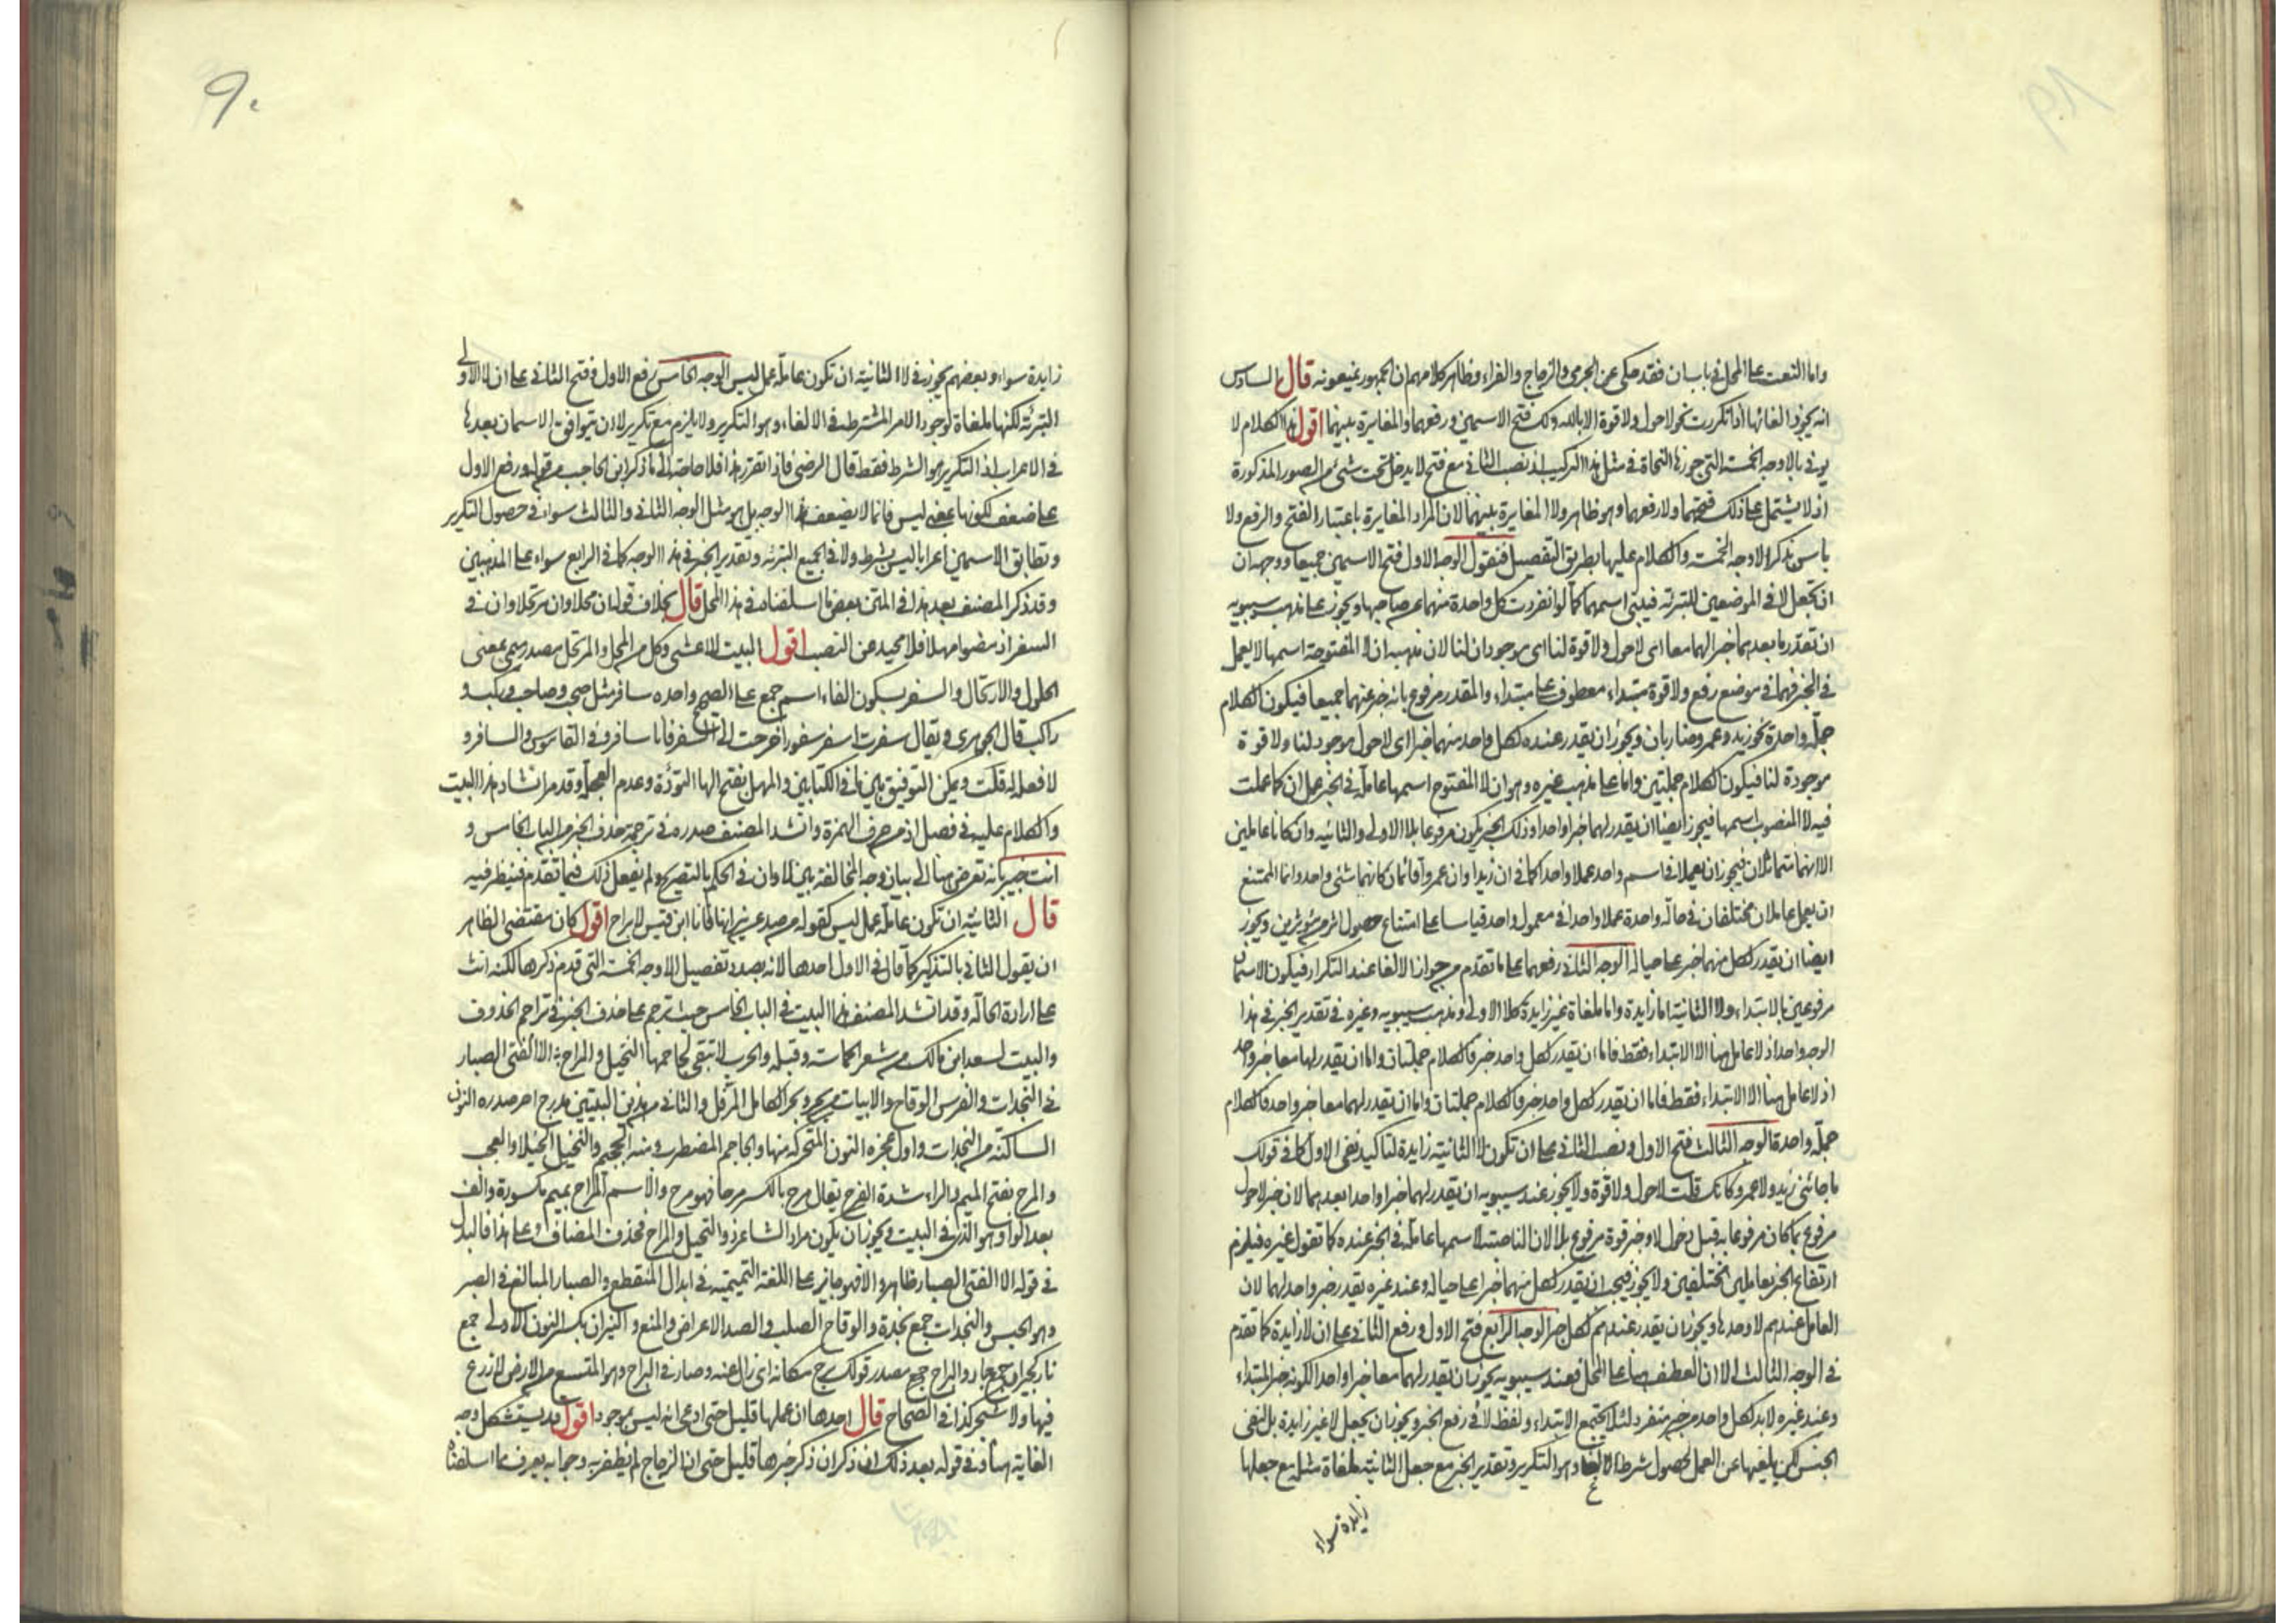 واما النعت على المحل في باب ان فقد حكى عن الجرمى والزجاج والفراء وظاهر كلامهم ان الجمهور يمنعونه قال السادس
انه يجوز الغائها اذا تكررت نحو لا حول ولا قوة الا بالله ولك فتح الاسمين ورفعهما والمغايرة بينهما اقول هذا الكلام لا
يوفى بالاوجه الخمسة التي جوزها النحاة في مثل هذا التركيب اذ نصب الثانى مع فتح لا يدخل تحت شئ من الصور المذكورة
اذ لا يشتمل على ذلك فتحهما ولا رفعهما وهو ظاهر ولا المغايرة بينهما لان المراد المغايرة باعتبار الفتح والرفع ولا
باس بذكر الاوجه الخمسة والكلام عليها بطريق التفصيل فنقول الوجه الاول فتح الاسمين جميعا ووجهه ان
ان تجعل لا في الموضعين للتبرئة فيبنى اسمهما كما لو انفردت كل واحدة منهما عن صاحبها ويجوز على مذهب سيبويه
ان تقدر ما بعدهما خبرا لهما معا اى لا حول ولا قوة لنا اى موجودان لنا لان مذهبه ان لا المفتوحة اسمها لا يعمل
في الخبر فهما في موضع رفع ولا قوة مبتداء معطوف على مبتداء والمقدر مرفوع بانه خبر عنهما جميعا فيكون الكلام
جملة واحدة نحو زيد وعمرو ضاربان ويجوز ان يقدر عنده لكل واحد منهما خبرا اى لا حول موجود لنا ولا قوة
موجودة لنا فيكون الكلام جملتين واما على مذهب غيره وهو ان لا المفتوح اسمها عاملة في الخبر عمل ان كما عملت
فيه لا المنصوب اسمها فيجوز ايضا ان يقدر لهما خبرا واحدا وذلك الخبر يكون مرفوعا بلا الاولى والثانيه وان كانا عاملين
الا انهما متماثلان فيجوز ان يعملا في اسم واحد عملا واحدا كما في ان زيدا وان عمروا قائمان كانهما شئ واحد وانما الممتنع
ان يعمل عاملان مختلفان في حالة واحدة عملا واحدا في معمول واحد قياسا على امتناع حصول اثر من مؤثرين ويجوز
ايضا ان يقدر لكل منهما خبر على حياله الوجه الثانى رفعهما على ما تقدم من جواز الالغا عند التكرار فيكون الاسمان
مرفوعين بالابتداء ولا الثانية اما زايدة واما ملغاة غير زايدة كلا الاولى ومذهب سيبويه وغيره في تقدير الخبر في هذا
الوجه واحد اذ لا عامل هنا الا الابتداء فقط فاما ان يقدر لكل واحد خبر فالكلام جملتان واما ان يقدر لهما معا خبر واحد
اذ لا عامل هنا الا الابتداء فقط فاما ان يقدر لكل واحد خبر فالكلام جملتان واما ان يقدر لهما معا خبر واحد فالكلام
جملة واحدة الوجه الثالث فتح الاول ونصب الثانى على ان تكون لا الثانية زايدة لتاكيد نفى الاول كما في قولك
ما جائنى زيد ولا عمرو كانك قلت لا حول ولا قوة ولا يجوز عند سيبويه ان يقدر لهما خبرا واحدا بعدهما لان خبر لا حول
مرفوع بما كان مرفوعا به قبل دخول لا وخبر قوة مرفوع بلا لان الناصبة لاسمها عاملة في الخبر عنده كما تقول غيره فيلزم
ارتفاع الخبر بعاملين مختلفين ولا يجوز فيجب ان يقدر لكل منهما خبرا على حياله وعند غيره يقدر خبر واحد لهما لان
العامل عندهم لا وحدها ويجوز ان يقدر عندهم لكل خبر الوجه الرابع فتح الاول ورفع الثانى على ان لا زايدة كما تقدم
في الوجه الثالث الا ان العطف هنا على المحل فعند سيبويه يجوز ان يقدر لهما معا خبرا واحدا لكونه خبر المبتداء
وعند غيره لا بد لكل واحد من خبر منفرد لئلا يجتمع الابتداء ولفظ لا في رفع الخبر ويجوز ان يجعل لا غير زايدة بل لنفى
الجنس لكن يلغيها عن العمل لحصول شرط الالغاء وهو التكرير وتقدير الخبر مع جعل الثانية ملغاة مثله مع جعلها
زايدة سواء
٩٠
زايدة سواء وبعضهم يجوز في لا الثانية ان تكون عاملة عمل ليس الوجه الخامس رفع الاول وفتح الثانى على ان لا الاولى
التبرئة لكنها ملغاة لوجود الامر المشترط في الالغاء وهو التكرير ولا يلزم مع تكرير لا ان يتوافق الاسمان بعدها
في الاعراب اذ التكرير هو الشرط فقط قال الرضى فاذا تقرر هذا فلا حاجة الى ما ذكر ابن الحاجب من قوله ورفع الاول
على ضعف لكونها بمعنى ليس فانما لا يضعف هذا الوجه بل هو مثل الوجه الثانى والثالث سواء في حصول التكرير
وتطابق الاسمين اعرابا ليس بشرط ولا في الجميع التبرئه وتقدير الخبر في هذا الوجه كما في الرابع سواء على المذهبين
وقد ذكر المصنف بعد هذا في المتن بعض ما اسلفناه في هذا المحل قال بخلاف قوله ان محلا وان مرتحلا وان في
السفر اذ مضوا مهلا فلا محيد عن النصب اقول البيت للاعشى وكل من المحل والمرتحل مصدر ميمى بمعنى
الحلول والارتحال والسفر بسكون الفاء اسم جمع على الصحيح واحده سافر مثل صحب وصاحب وركب و
راكب قال الجوهرى ويقال سفرت اسفر سفورا خرجت الى السفر فانا سافر وفي القاموس والسافر و
لا فعل له قلت ويمكن التوفيق بين ما في الكتابين والمهل بفتح الها التؤدة وعدم العجلة وقد مر انشاد هذا البيت
والكلام عليه في فصل اذ من حرف الهمزة وانشد المصنف صدره في ترجمة حذف الخبر من الباب الخامس و
انت خبير بانه تعرض هنا الى بيان وجه المخالفة بين لا وان في الحكم بالتصريح ولم يفعل ذلك فيما تقدم فينظر فيه
قال الثانية ان تكون عاملة عمل ليس كقوله من صد عن نيرانها فانا ابن قيس لا براح اقول كان مقتضى الظاهر
ان يقول الثانى بالتذكير كما قال في الاول احدها لانه بصدد تفصيل الاوجه الخمسة التي قدم ذكرها لكنه انث
على ارادة الحالة وقد انشد المصنف هذا البيت في الباب الخامس حيث ترجم على حذف الخبر في تراجم الحذوف
والبيت لسعد ابن مالك من شعر الحماسة وقبله والحرب لا تبقى لجاحمها التخيل والمراح الا الفتى الصبار
في النجدات والفرس الوقاح والابيات من مجزو بحر الكامل المرفل والثانى من هذين البيتين مدرج اخر صدره النون
الساكنة من النجدات واول عجزه النون المتحركه منها والجاحم المضطرب ومنه الجحيم والتخيل الخيلا والعجب
والمرح بفتح الميم والراء شدة الفرح يقال مرح بالكسر مرحا فهو مرح والاسم المراح بميم مكسورة والف
بعد الراء وهو الذى في البيت ويجوز ان يكون مراد الشاعر ذو التخيل والمراح فحذف المضاف وعلى هذا فالبدل
في قوله الا الفتى الصبار ظاهر والا فهو جايز على اللغة التميمية في ابدال المنقطع والصبار المبالغ في الصبر
وهو الحبس والنجدات جمع نجدة والوقاح الصلب والصد الاعراض والمنع والنيران بكسر النون الاولى جمع
نار كجيران جمع جار والبراح مصدر قولك برح مكانه اى زال عنه وصار في البراح وهو المتسع من الارض لا زرع
فيها ولا شجر كذا في الصحاح قال احدها ان عملها قليل حتى ادعى انه ليس بموجود اقول قد يستشكل وجه
الغاية هنا وفي قوله بعد ذلك ان ذكر خبرها قليل حتى ان الزجاج لم يظفر به وجوابه يعرف مما اسلفناه